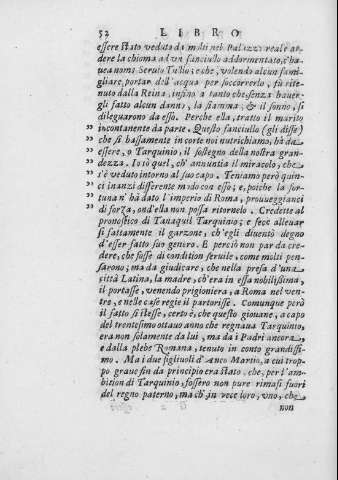 52 LIBRO
essere stato veduto da molti nel Palazzo reale ar-
dere la chioma ad un fanciullo addormentato, c'ha-
uea nome Seruio Tullio; e che, volendo alcun fami-
gliare, portar dell'acqua per soccorrerlo, fù rite-
nuto dalla Reina, insino a tanto che, senza hauer-
gli fatto alcun danno, la fiamma, & il sonno, si
dileguarono da esso. Perche ella, tratto il marito
incontanente da parte, Questo fanciullo (gli disse)
„ che sì bassamente in corte noi nutrichiamo, hà da
„ essere, o Tarquinio, il sostegno della nostra gran-
„ dezza. Io sò quel, ch'annuntia il miracolo, che
„ s'è veduto intorno al suo capo. Teniamo però quin-
„ ci inanzi differente modo con esso; e, poiche la for-
„ tuna n'hà dato l'imperio di Roma, proueggianci
„ di forza, ond'ella non possa ritornelo. Credette al
pronostico di Tanaquil Tarquinio; e fece alleuar
sì fattamente il garzone, ch'egli diuentò degno
d'esser fatto suo genero. E perciò non par da cre-
dere, che fosse di condition seruile, come molti pen-
sarono; ma da giudicare, che nella presa d'una
città Latina, la madre, ch'era in essa nobilissima,
il portasse, venendo prigioniera, a Roma nel ven-
tre, e nelle case regie il partorisse. Comunque però
il fatto si stesse, certo è, che questo giouane, a capo
del trentesimo ottauo anno che regnaua Tarquinio,
era non solamente da lui, ma da i Padri ancora,
e dalla plebe Romana, tenuto in conto grandissi-
mo. Ma i due figliuoli d'Anco Martio, a cui trop-
po graue fin da principio era stato, che, per l'am-
bition di Tarquinio, fossero non pure rimasi fuori
del regno paterno, ma ch'in vece loro, vno, che
non